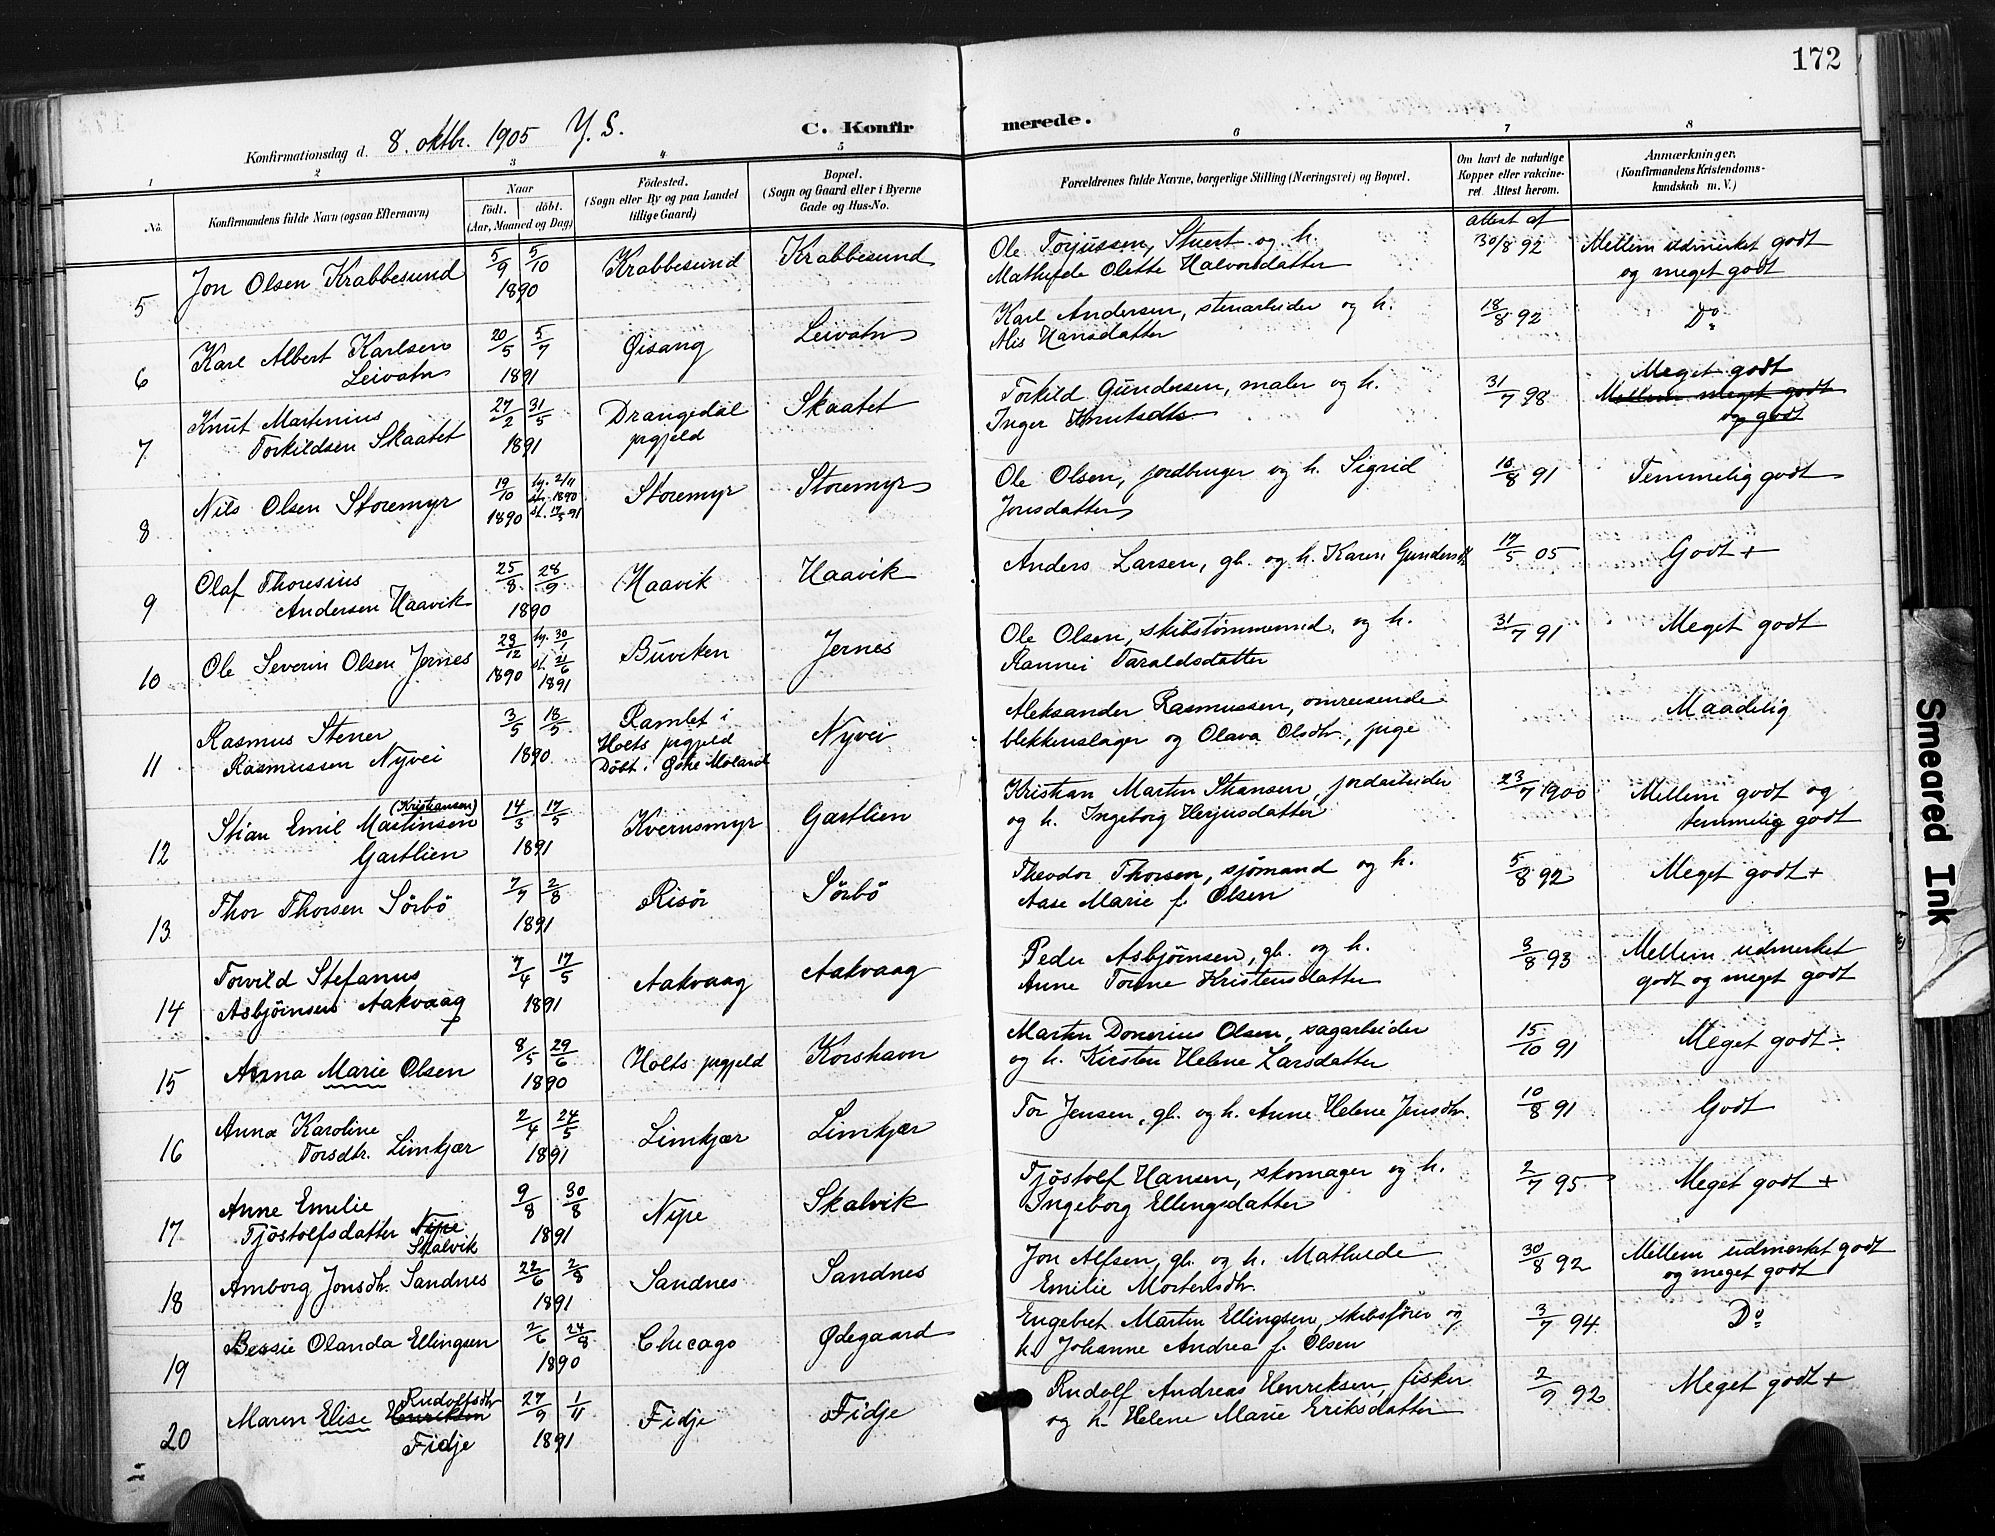 172
Konfirmationsdag d. 8. oktbr. 1905 Y. S.
C. Konfirmerede.
1 2 3 4 5 6 7 8
No.
Konfirmandens fulde Navn (ogsaa Efternavn)
Naar
født. døbt.
(Aar, Maaned og Dag)
Fødested.
(Sogn eller By og paa Landet
tillige Gaard)
Bopæl.
(Sogn og Gaard eller i Byerne
Gade og Hus-No.
Forældrenes fulde Navne, borgerlige Stilling (Næringsvei) og Bopæl.
Om havt de naturlige
Kopper eller vakcine-
ret. Attest herom.
Anmærkninger.
(Konfirmandens Kristendoms-
kundskab m. V.)
5 Jon Olsen Krabbesund
5/9 5/10
1890
Krabbesund
Krabbesund
Ole Torjussen, Stuert og h.
Mathilde Olette Halvorsdatter
attest af
30/8 92
Mellem udmerket godt
og meget godt
6 Karl Albert Karlsen
Leivatn
20/5 5/7
1891
Øisang
Leivatn
Karl Andersen, stenarbeider og h.
Alis Hansdatter
18/8 92
Do
7 Knut Martinius
Torkildsen Skaatet
27/2 31/5
1891
Drangedal
prgjeld
Skaatet
Torkild Gundersen, maler og h.
Inger Knutsdtr
31/7 98
Meget godt
Mellem meget godt
og godt
8 Nils Olsen Storemyr
19/10 hj. 2/11
1890
1890 st. 17/5 91
Storemyr
Storemyr
Ole Olsen, jordbruger og h. Sigrid
Jonsdatter
10/8 91
Temmelig godt
9 Olaf Thoresius
Andersen Haavik
25/8 28/9
1890
Haavik
Haavik
Anders Larsen, gb. og h. Karen Gundersdtr
17/5 05
Godt +
10 Ole Severin Olsen Jernes
23/12 hj. 30/1
1890 st. 21/6
1891
Buviken
Jernes
Ole Olsen, skibstømmermd. og h.
Rannei Taraldsdatter
31/7 91
Meget godt
11 Rasmus Stener
Rasmussen Nyvei
3/5 18/5
1890
Ramlet i
Holts prgjeld
Døbt i Østre Moland
Nyvei
Aleksander Rasmussen, omreisende
blikkenslager og Olava Olsdtr, pige
Maadelig
12 Stian Emil (Kristiansen) Martinsen
Gartlien
14/3 17/5
1891
Kvernsmyr
Gartlien
Kristian Martin Stiansen, jordarbeider
og h. Ingeborg Herjusdatter
23/7 1900
Mellem godt og
temmelig godt
13 Thor Thorsen Sørbø
7/7 2/8
1891
Risør
Sørbø
Theodor Thorsen, sjømand og h.
Aase Marie f. Olsen
5/8 92
Meget godt +
14 Torvild Stefanus
Asbjørnsen Aakvaag
7/4 17/5
1891
Aakvaag
Aakvaag
Peder Asbjørnsen, gb. og h.
Anne Tomine Kristensdatter
3/8 93
Mellem udmerket
godt og meget godt
15 Anna Marie Olsen
8/5 29/6
1890
Holts prgjeld
Korshavn
Martin Donerius Olsen, sagarbeider
og h. Kirsten Helene Larsdatter
15/10 91
Meget godt ÷
16 Anna Karoline
Torsdtr. Limkjær
2/4 24/5
1891
Limkjær
Limkjær
Tor Jensen, gb. og h. Anne Helene Jensdtr.
10/8 91
Godt
17 Anne Emilie
Tjøstolfsdatter Nipe
Skalvik
9/8 30/8
1891
Nipe
Skalvik
Tjøstolf Hansen, skomager og h.
Ingeborg Ellingsdatter
2/7 95
Meget godt +
18 Amborg Jonsdtr. Sandnes
22/6 2/8
1891
Sandnes
Sandnes
Jon Alfsen, gb. og h. Mathilde
Emilie Mortensdtr.
30/8 92
Mellem udmerket godt
og meget godt
19 Bessie Olanda Ellingsen
2/6 24/8
1890
Chicago
Ødegaard
Engebret Martin Ellingsen, skibsfører og
h. Johanne Andrea f. Olsen
3/7 94
Do
20 Maren Elise Rudolfsdtr Henriksen
Fidje
27/9 1/11
1891
Fidje
Fidje
Rudolf Andreas Henriksen, fisker
og h. Helene Marie Eriksdatter
2/9 92
Meget godt +
Smeared Ink